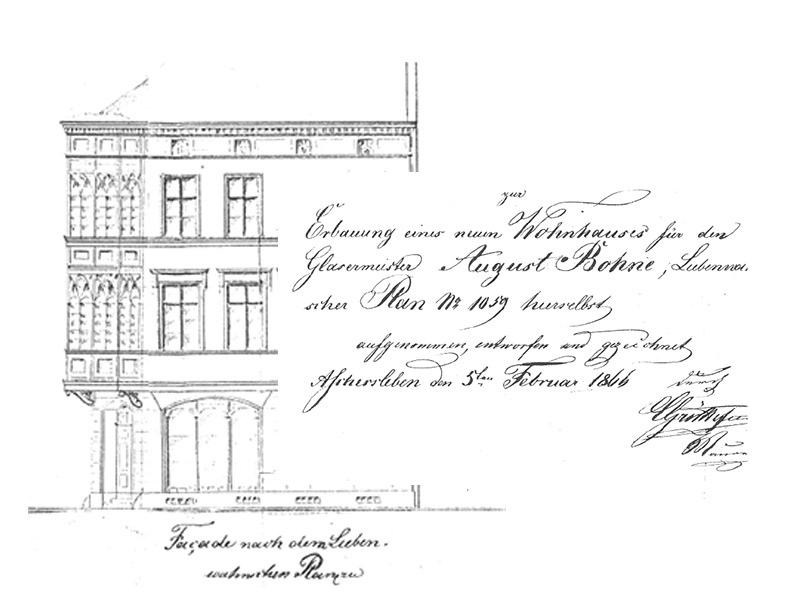 zur
Erbauung eines neuen Wohnhauses für den
Glasermeister August Bohne, Liebenwa-
scher Plan No 1059 hierselbst
aufgenommen, entworfen und gezeichnet
Aschersleben den 5ten Februar 1866
durch
Façade nach dem Lieben-
wahnschen Plan zu